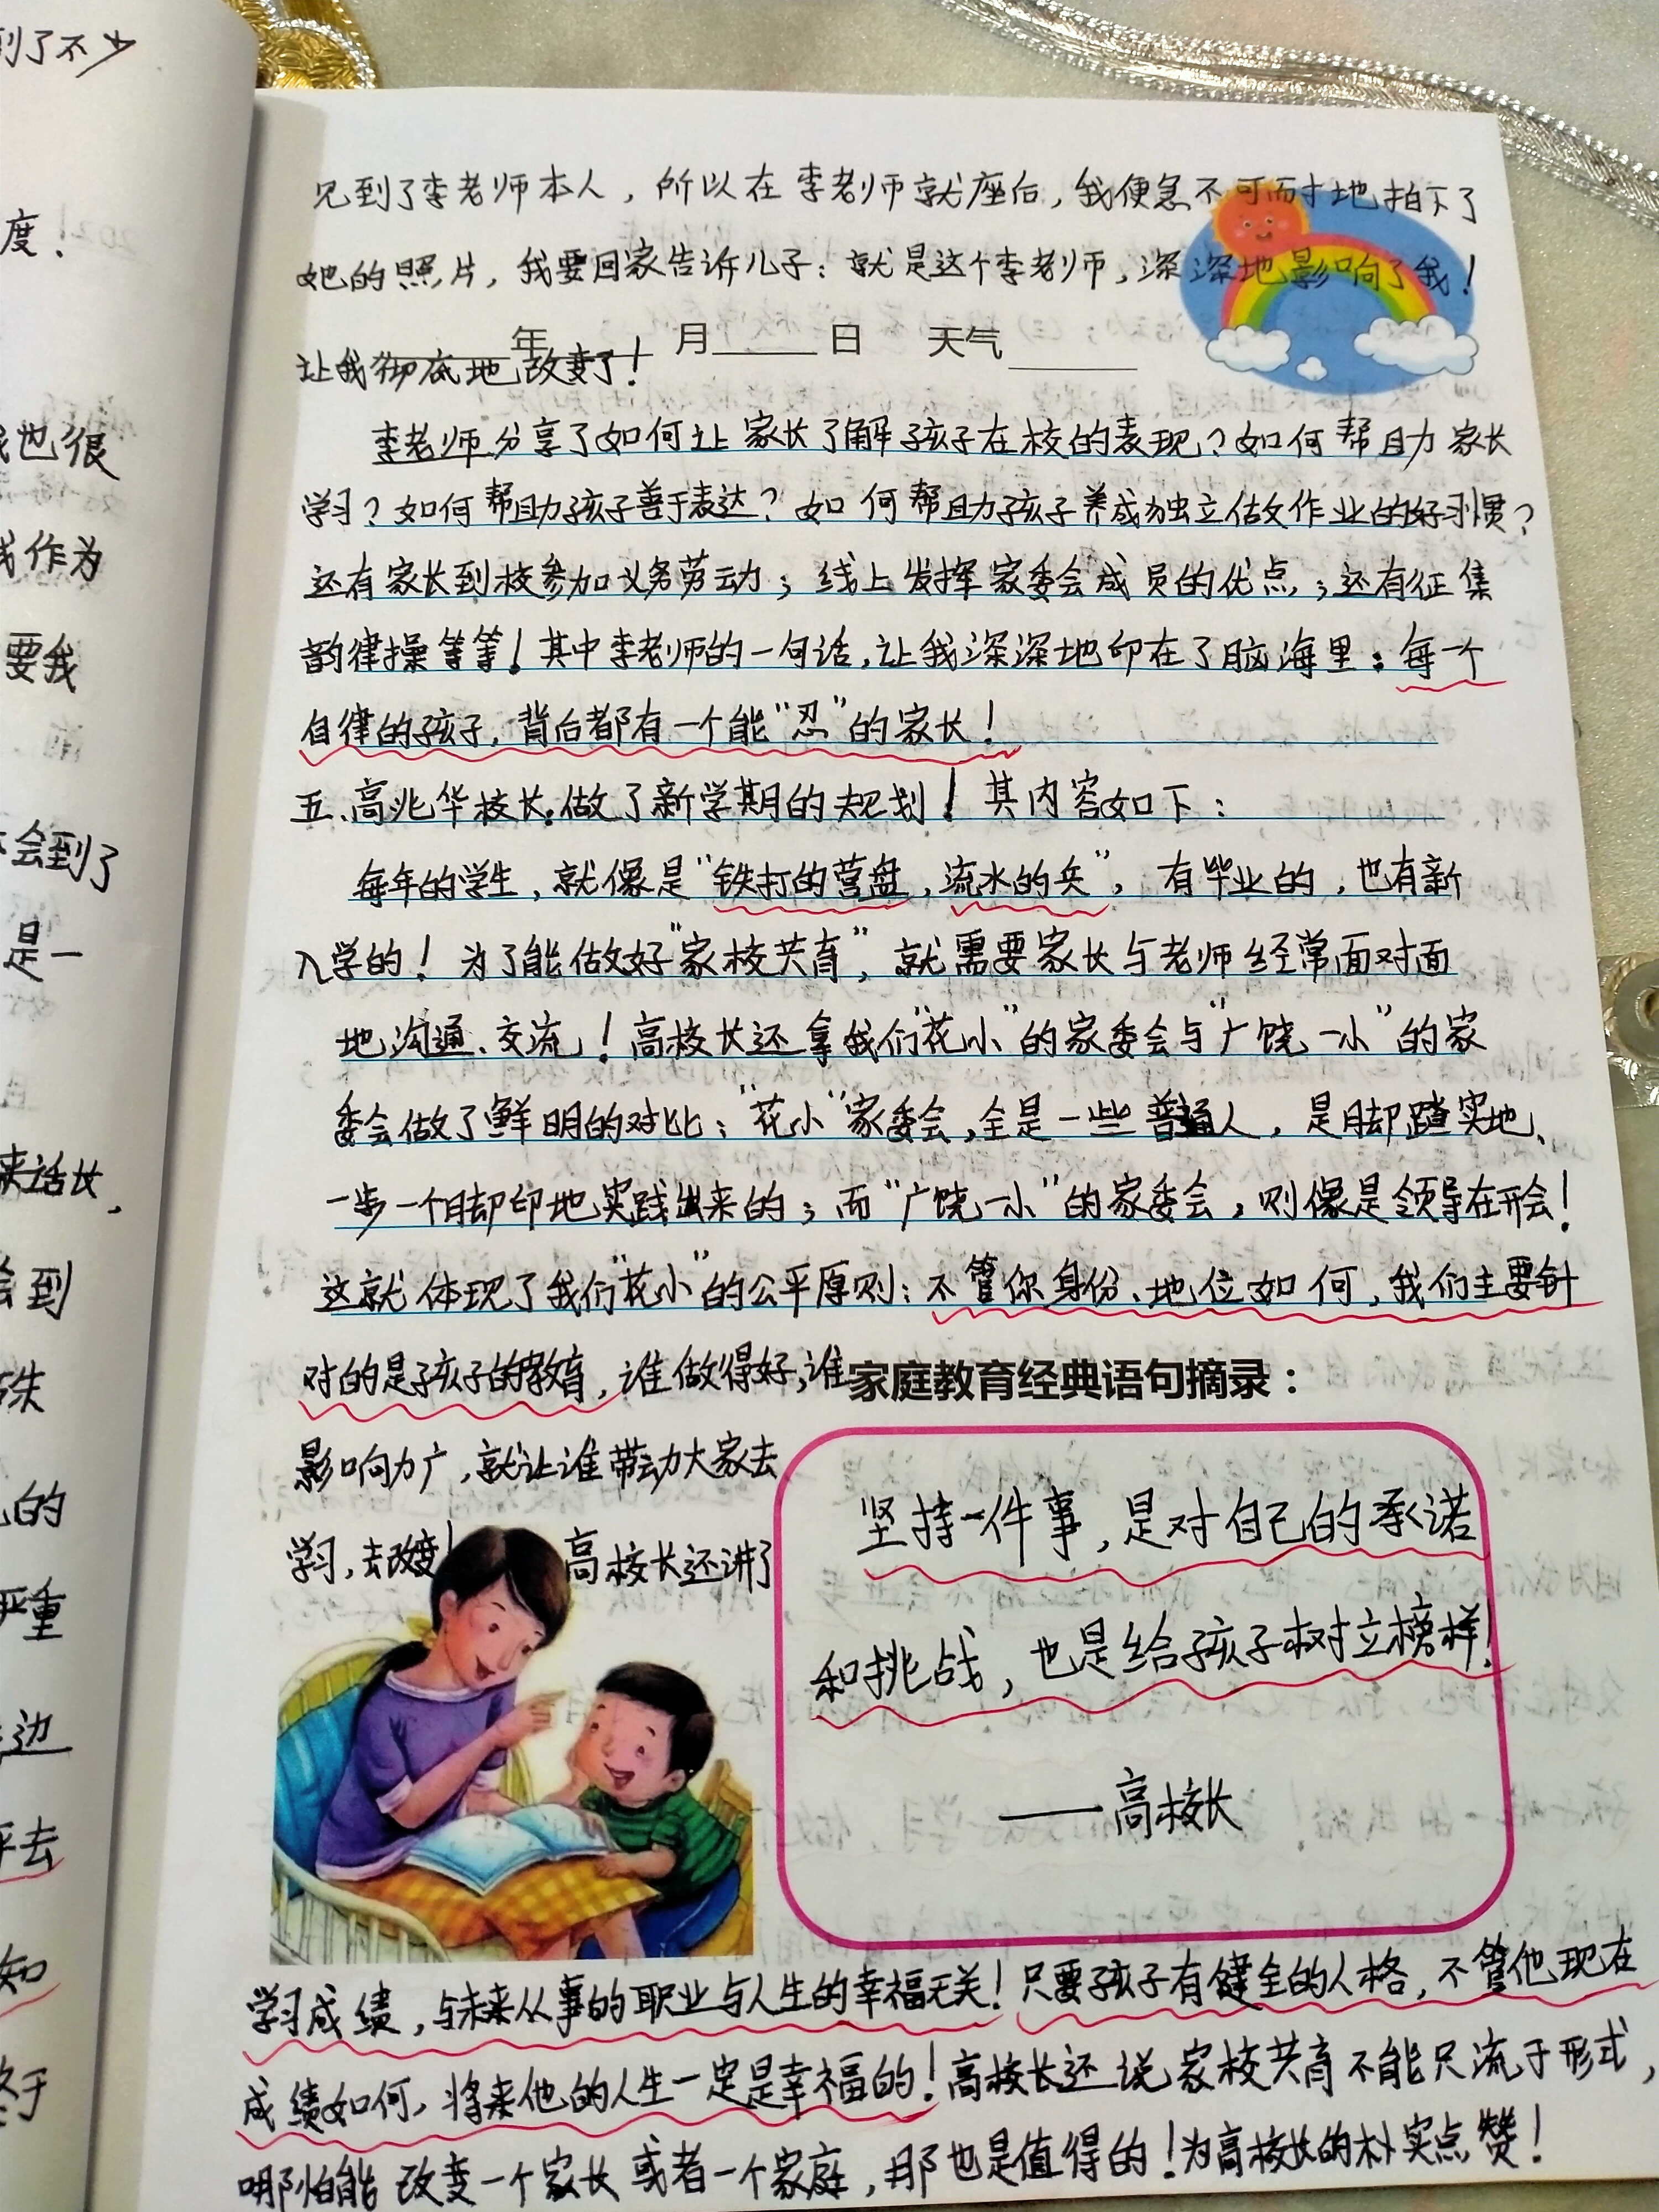 到了不少
度！
也很
作为
要我
会到了
是一
来话长，
到
珠
的
严重
边
去
知
终于
见到了李老师本人，所以在李老师就座后，我便急不可而才地拍下了
她的照片，我要回家告诉儿子：就是这个李老师，深深地影响了我！
年 月 日 天气
让我彻底地改变了！
李老师分享了如何让家长了解孩子在校的表现？如何帮助家长
学习？如何帮助孩子善于表达？如何帮助孩子养成独立做作业的好习惯？
还有家长到校参加义务劳动；线上发挥家委会成员的优点；还有征集
韵律操等等！其中李老师的一句话，让我深深地印在了脑海里：每一个
自律的孩子，背后都有一个能“忍”的家长！
五、高兆华校长：做了新学期的规划！其内容如下：
每年的学生，就像是“铁打的营盘，流水的兵”，有毕业的，也有新
入学的！为了能做好“家校共育”，就需要家长与老师经常面对面
地沟通、交流！高校长还拿我们“花小”的家委会与“广饶一小”的家
委会做了鲜明的对比：“花小”家委会，全是一些普通人，是脚踏实地、
一步一个脚印地实践出来的；而“广饶一小”的家委会，则像是领导在开会！
这就体现了我们“花小”的公平原则：不管你身份、地位如何，我们主要针
对的是孩子的教育，谁做得好，谁
家庭教育经典语句摘录：
影响力广，就让谁带动大家去
学习，去改变！ 高校长还讲了
坚持一件事，是对自己的承诺
和挑战，也是给孩子树立榜样！
——高校长
学习成绩，与未来从事的职业与人生的幸福无关！只要孩子有健全的人格，不管他现在
成绩如何，将来他的人生一定是幸福的！高校长还说家校共育不能只流于形式，
哪怕能改变一个家长或者一个家庭，那也是值得的！为高校长的朴实点赞！